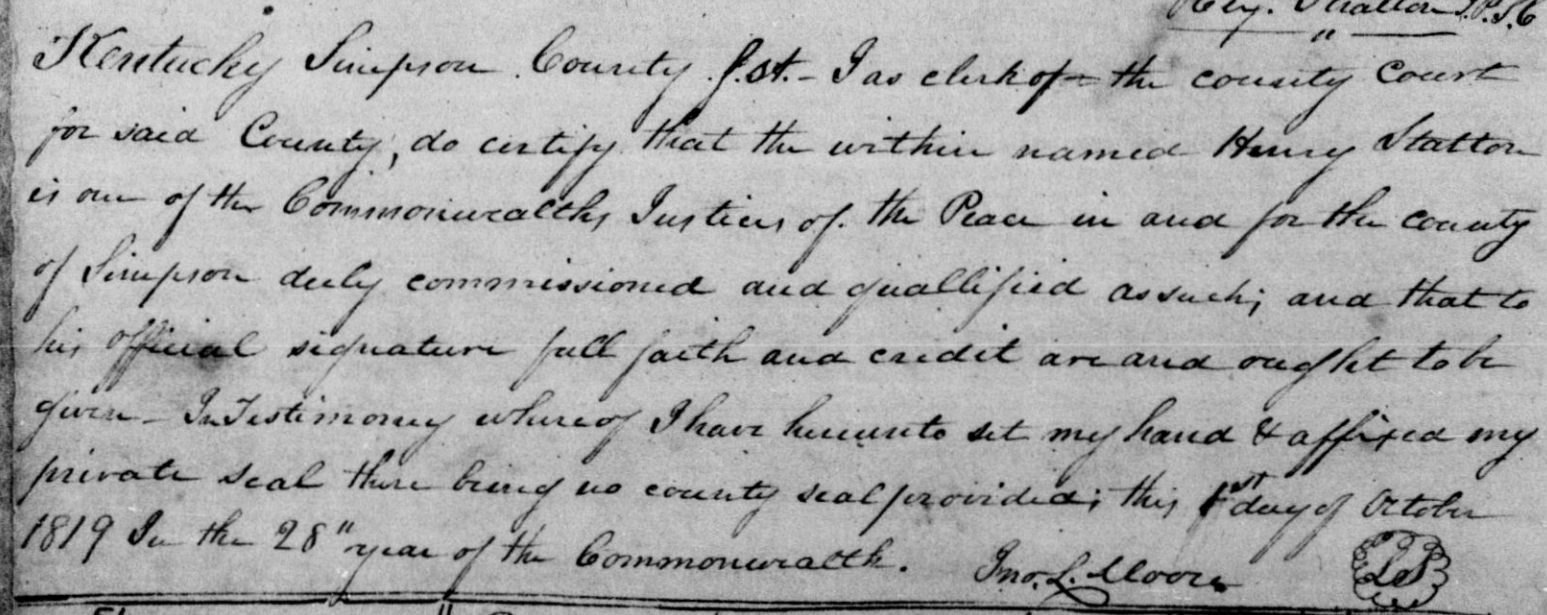 Hey. Stratton J.P.S.C
Kentucky Simpson County S.st. - I as clerk of - the county Court
for said County, do certify that the within named Henry Statton
is one of the Commonwealths Justices of the Peace in and for the county
of Simpson duly commissioned and quallified as such; and that to
his official signature full faith and credit are and ought to be
given - In Testimoney whereof I have hereunto set my hand & affixed my
private seal there being no county seal provided; this 1st day of October
1819 In the 28" year of the Commonwealth. Jno. L. Moore LS